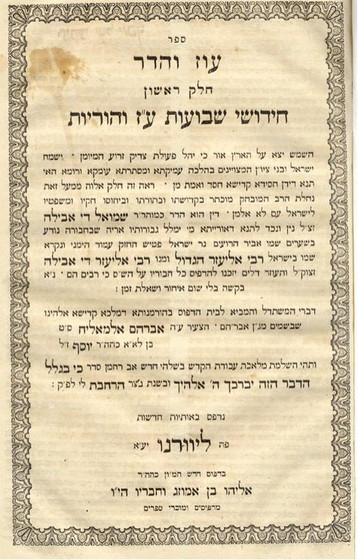 ספר
עוז והדר
חלק ראשון
חידושי שבועות ע״ז והוריות
השמש יצא על הארץ אור כי יהל פעולת צדיק זרוע המיומן י׳ וישמח
ישראל ובני ציון המצויינים בהלכה עמיקתא ומסתרתא עומקא ורומא האי
תנא דידן חסידא קדישא חסד ואמת מן י׳ ראה זה חלק אלוה ממעל זאת
נחלת הרב המובהק מוכתר בקדושתו ובתורתו וביחוסו חקיו ומשפטיו
לישראל עם לא אלמן י׳ דין הוא הדר כמוהר״ר שמואל די אבילה
זצ״ל נין ונכד לתנא דאורייתא מי ימלל גבורותיו אריה שבחבורה נודע
בשערים שמו אביר הרועים נר ישראל פטיש החזק עמוד הימני ונקרא
שמו בישראל רבי אליעזר הגדול ומנו רבי אליעזר די אבילה
זצוק״ל והעזר דלים יזכנו להדפיס כל חבוריו על הש״ס כי רבים הם י׳ נ״א
בקשה בלי שום איחור ושאלת זמן :
דברי המשתדל והמביא לבית הדפוס בהורמנותא דמלכא קדישא אלהינו
שבשמים מג״ן אברהם י׳ הצעיר ע״ה אברהם אלמאליח ס״ט
בן לא״א כהה״ר יוסף ז״ל
ותהי השלמת מלאכת עבודת הקדש בשלהי חדש אב רחמן סדר כי בגלל
הדבר הזה יברכך ה׳ אלהיך ובשנת נ״צר הרחבת לי לפ״ק :
נדפס באותיות חדשות
פה ליוורנו יע״א
בדפוס חדש המ״ון כהה״ר
אליהו בן אמוזג וחבריו הי״ו
מדפיסים ומוכרי ספרים